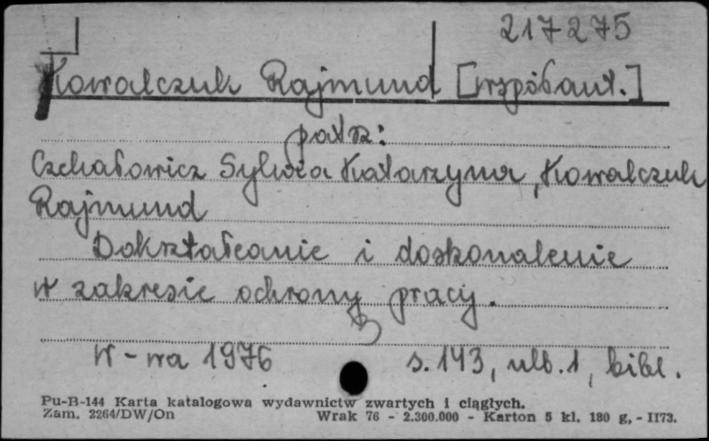 217275
Kowalczuk Rajmund [współaut.]
patrz:
Czchałowicz Sylwia Katarzyna, Kowalczuk
Rajmund
Dokształcanie i doskonalenie
w zakresie ochrony pracy.
W-wa 1976 s. 143, nlb. 1, bibl.
Pu-B-144 Karta katalogowa wydawnictw zwartych i ciągłych.
Zam. 2264/DW/On Wrak 76 - 2.300.000 - Karton 5 kl. 180 g. - II73.